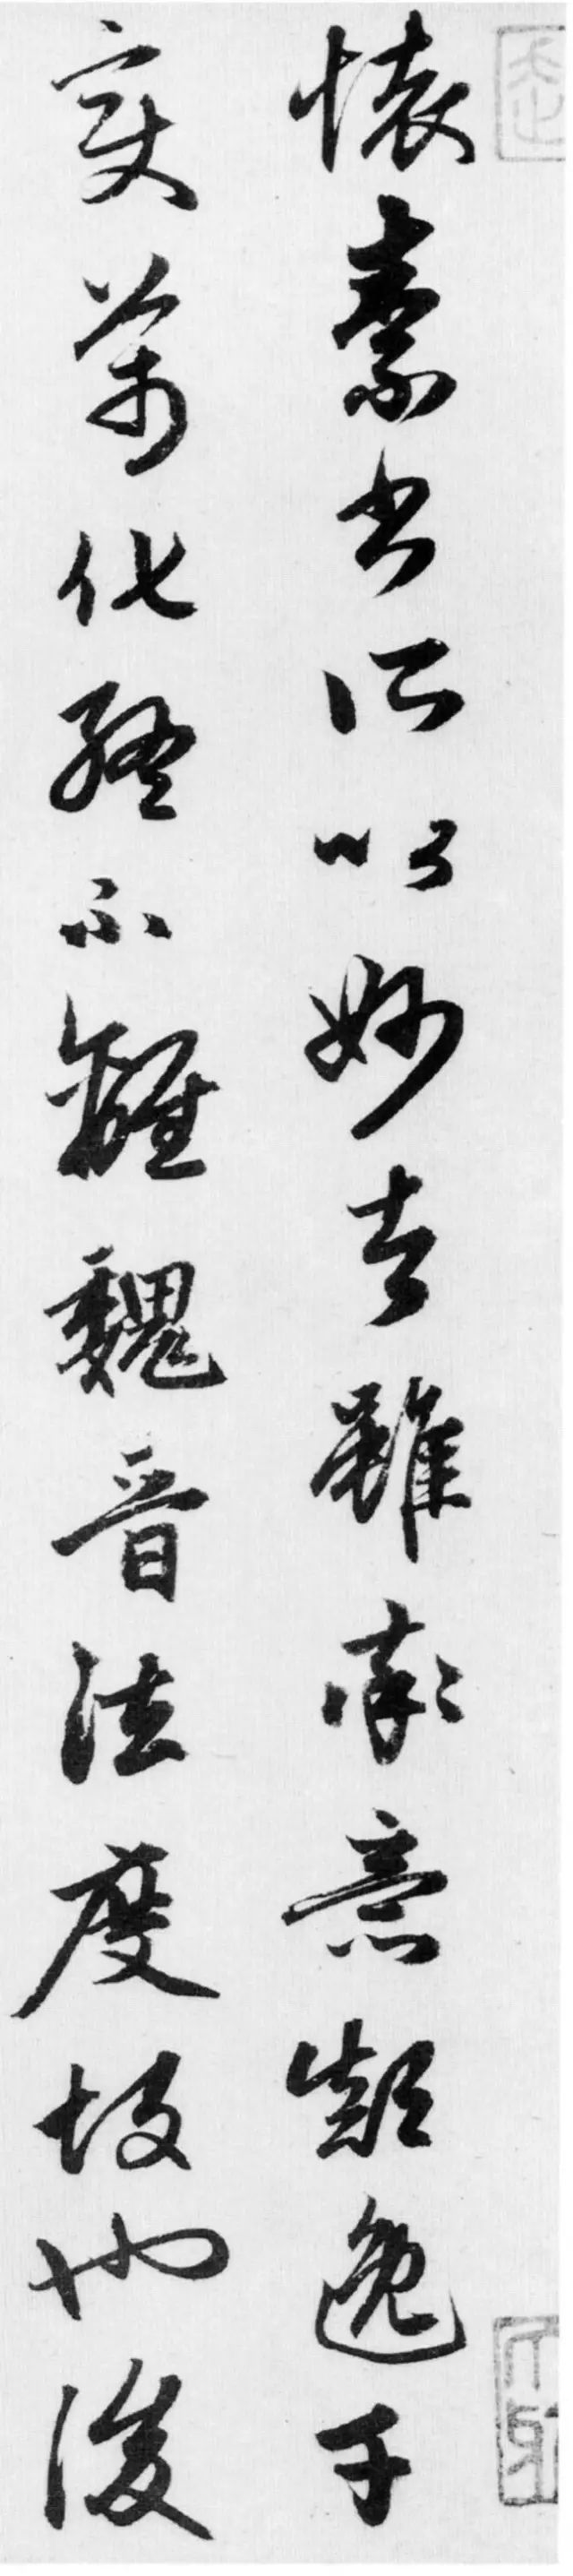 懷素書所以妙者雖率意顛逸千
變萬化終不離魏晉法度故也後